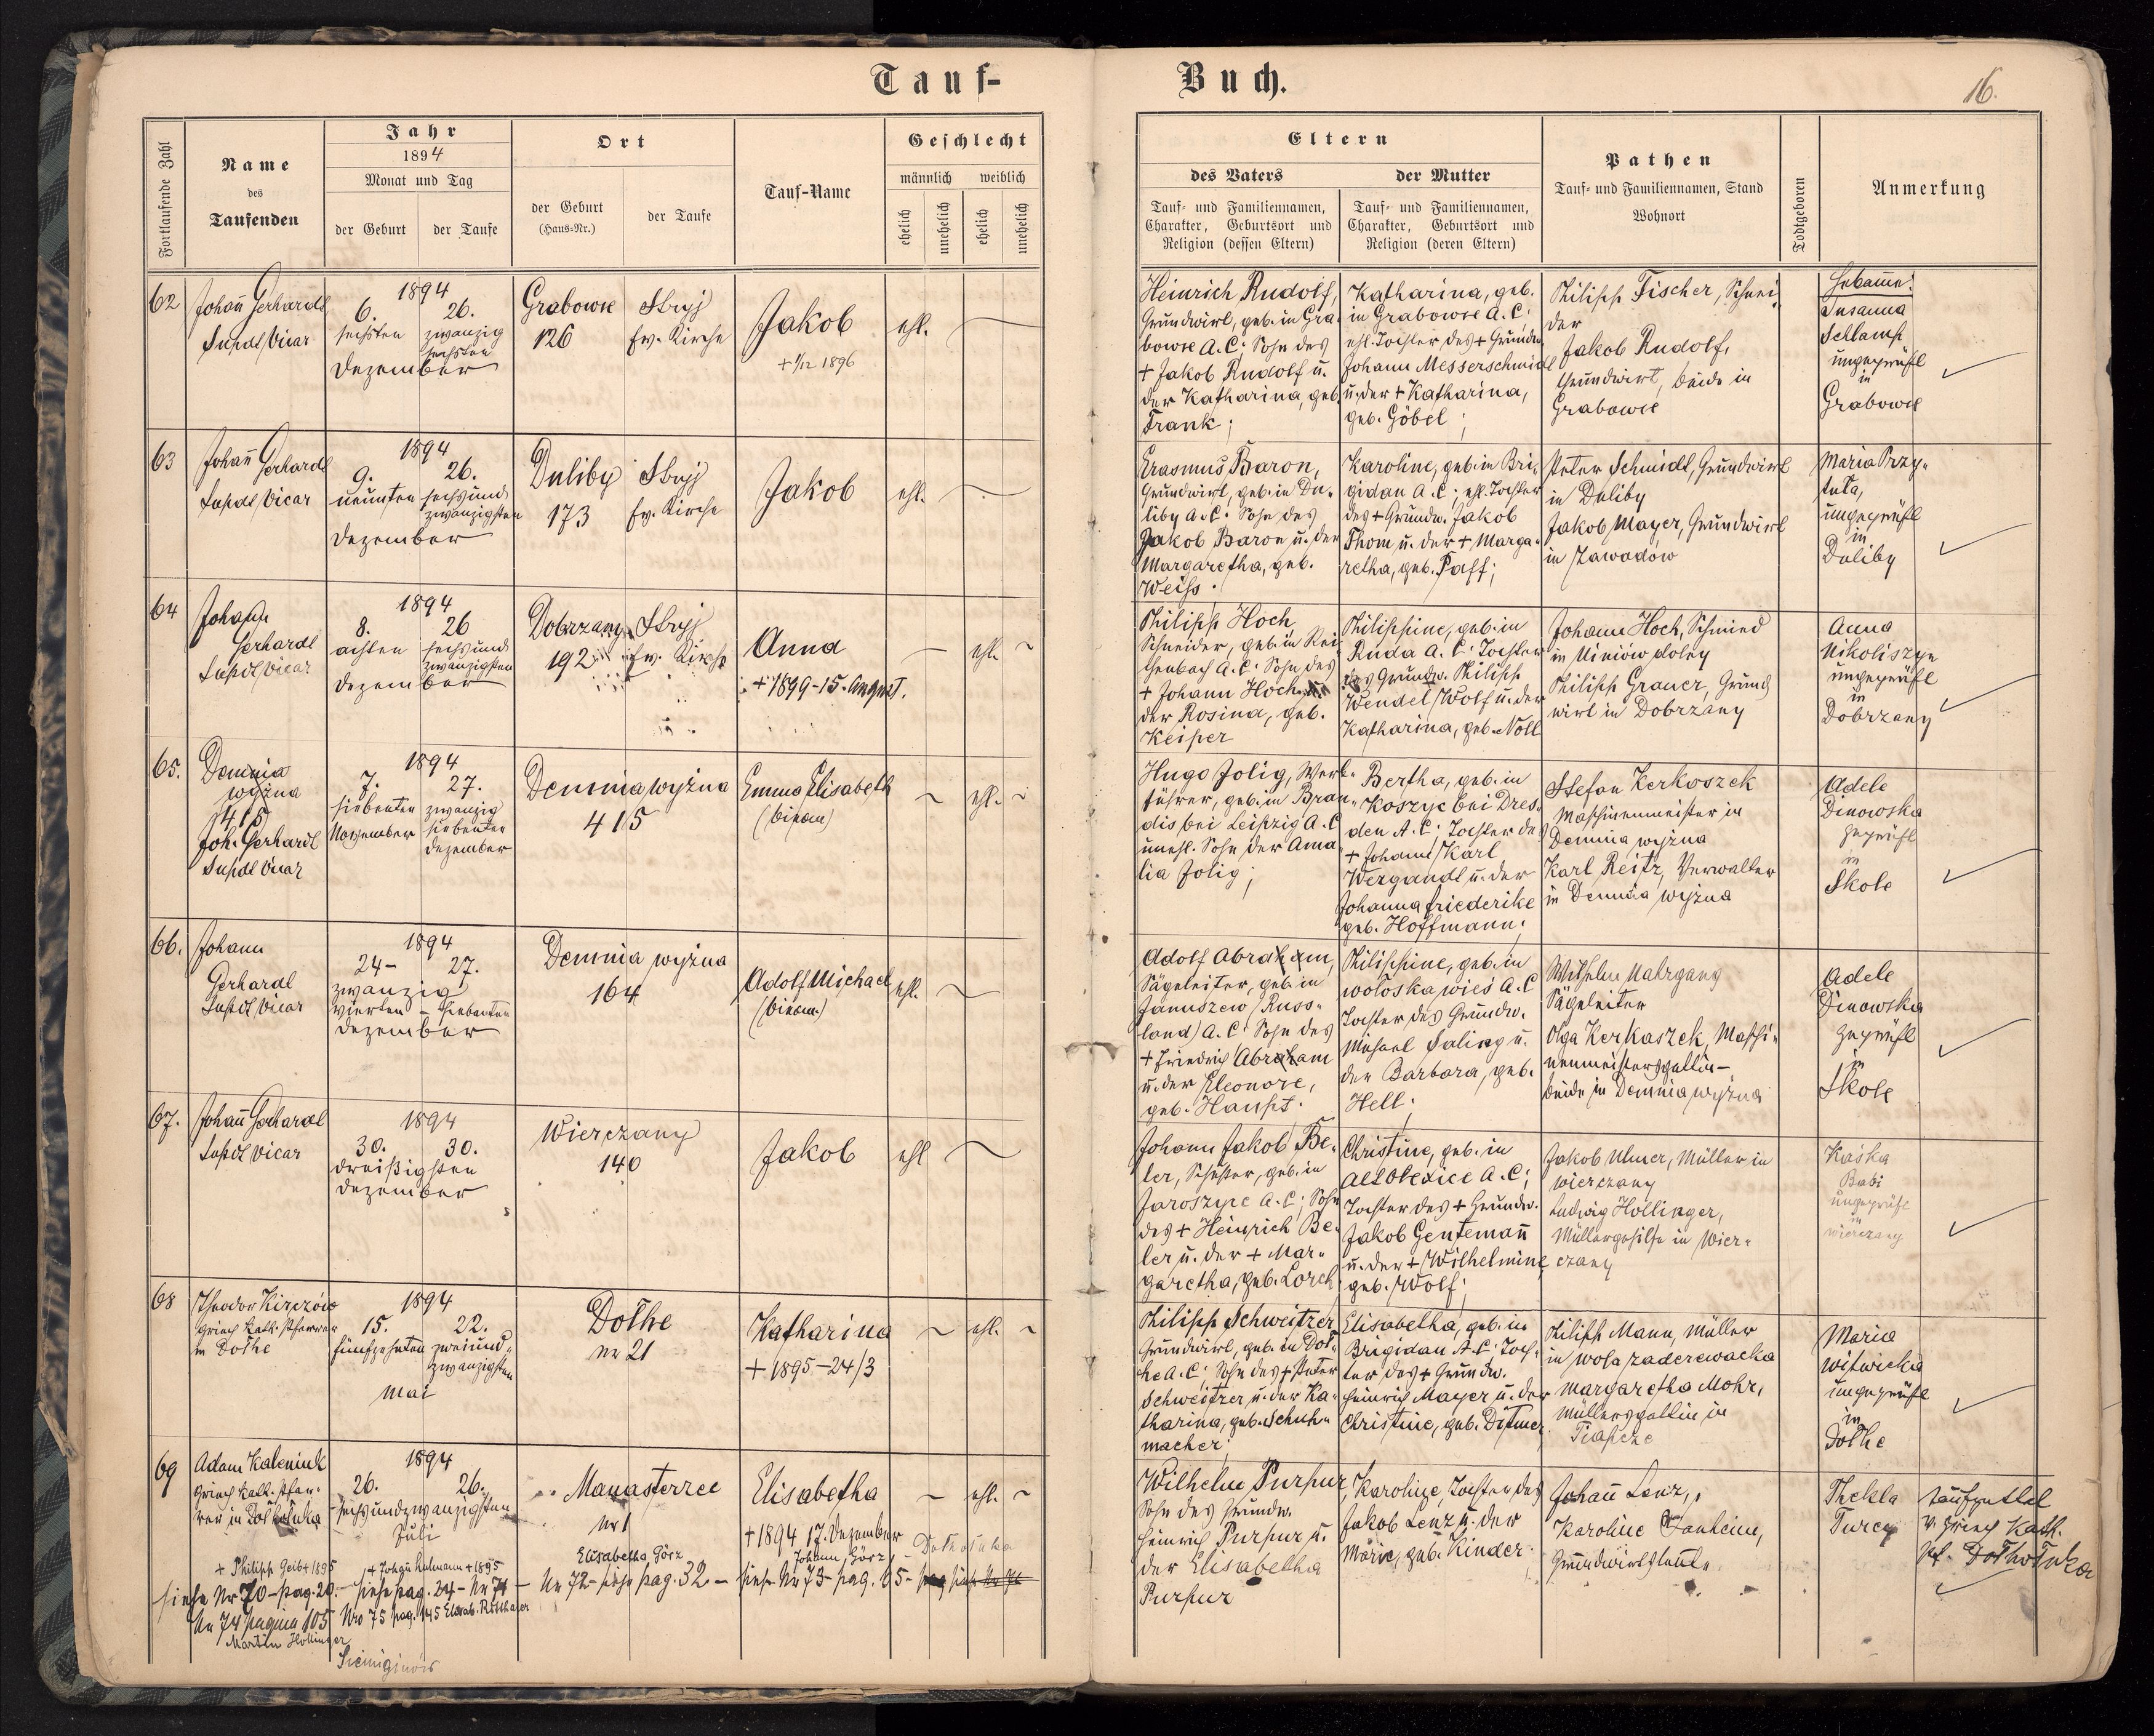 Tauf-
Buch.
16.
Fortlaufende Zahl
Name
des
Taufenden
Jahr
1894
Monat und Tag
der Geburt
der Taufe
Ort
der Geburt
(Haus-Nr.)
der Taufe
Tauf-Name
Geschlecht
männlich
weiblich
ehelich
unehelich
ehelich
unehelich
Eltern
des Vaters
Tauf- und Familiennamen,
Charakter, Geburtsort und
Religion (dessen Eltern)
der Mutter
Tauf- und Familiennamen,
Charakter, Geburtsort und
Religion (deren Eltern)
Pathen
Tauf- und Familiennamen, Stand
Wohnort
Todtgeboren
Anmerkung
62
Johañ Gerhardt
Supdt Vicar
1894
6. 26.
sechsten zwanzig
sechsten
Dezember
Grabowce
126
Stryj
Ev. Kirche
Jakob
+ 1/12 1896
ehl.
Heinrich Rudolf,
Grundwirt, geb. in Gra-
bowce A.C; Sohn des
+ Jakob Rudolf u.
der Katharina, geb.
Frank;
Katharina, geb.
in Grabowce A.C;
ehl. Tochter des + Grundw.
Johann Messerschmidt
u. der + Katharina,
geb. Göbel;
Philipp Fischer, Schnei-
der
Jakob Rudolf,
Grundwirt, beide in
Grabowce
Hebam̄e:
Susanna
Schlamp
ungeprüft
in
Grabowce
63
Johañ Gerhardt
Supdt Vicar
1894
9. 26.
neunten sechsund
zwanzigsten
Dezember
Duliby
173
Stryj
Ev. Kirche
Jakob
ehl.
Erasmus Baron,
Grundwirt, geb. in Du-
liby A.C. Sohn des
Jakob Baron u. der
Margaretha, geb.
Weiss.
Karoline, geb. in Bri-
gidau A.C; ehl. Tochter
des + Grundw. Jakob
Thom u. der + Marga-
retha, geb. Paff;
Peter Schmidt, Grundwirt
in Duliby
Jakob Mayer, Grundwirt
in Zawadow
Maria Przy-
tuta,
ungeprüft
in
Duliby
64
Johañ
Gerhardt
Supdt Vicar
1894
8. 26
achten sechsund
zwanzigsten
Dezember
Dobrzany
192
Stryj
Ev. Kirche
Anna
+ 1899-15. August.
ehl.
Philipp Hoch
Schneider, geb. in Rei-
chenbach A.C. Sohn des
+ Johann Hoch u.
der Rosina, geb.
Keiper
Philippine, geb. in
Ruda A.C. Tochter
des Grundw. Philipp
Wendel Wolf u. der
Katharina, geb. Noll
Johann Hoch, Schmied
in Uniów dolny
Philipp Grauer, Grund
wirt in Dobrzany
Anna
Nikoliszyn
ungeprüft
in
Dobrzany
65.
Demnia
wyżna
415
Joh. Gerhardt
Supdt Vicar
1894
7. 27.
siebenten zwanzig
November siebenten
Dezember
Demnia wyżna
415
Emma Elisabeth
ehl.
Hugo Jolig, Werk-
führer, geb. in Bran-
dis bei Leipzig A.C
unehl. Sohn der Ama
lia Jolig;
Bertha, geb. in
Koszyc bei Dres-
den A.C; Tochter des
+ Johann Karl
Wergandt u. der
Johanna Friederike
geb. Hoffmann;
Stefan Kerkoszek
Maschinenmeister in
Demnia wyżna
Karl Reitz, Verwalter
in Demnia wyżna
Adele
Dinowska
geprüft
in
Skole
66.
Johann
Gerhardt
Supdt Vicar
1894
24- 27.
zwanzig
vierten - siebenten
Dezember
Demnia wyżna
164
Adolf Michael
ehl.
Adolf Abraham,
Sägeleiter, geb. in
Januszew (Russ-
land) A.C. Sohn des
+ Friedrich Abraham
u. der Eleonore,
geb. Haupt.
Philippine, geb. in
Wołoska wieś A.C
Tochter des Grundw.
Michael Saling u.
der Barbara, geb.
Hell;
Wilhelm Nahrgang
Sägeleiter
Olga Kerkaszek, Maschi-
nenmeistersgattin -
beide in Demnia wyżna
Adele
Dinowska
geprüft
in
Skole
67.
Johañ Gerhardt
Supdt Vicar
1894
30. 30.
dreißigsten
Dezember
Wierczany
140
Jakob
ehl
Johann Jakob Be-
ler, Schuster, geb. in
Jaroszyce A.C; Sohn
des + Heinrich Be-
ler u. der + Mar-
garetha, geb. Lorch
Christine, geb. in
A.C;
Tochter des + Grundw.
Jakob Gentemañ
u. der + Wilhelmine
geb. Wolf;
Jakob Ulmer, Müller in
Wierczany
Ludwig Hollinger,
Müllergehilfe in Wier-
czany
Kaśka
Babi
ungeprüft
in
Wierczany
68
Theodor Kirczów
griech kath. Pfarrer
in Dołhe
1894
15. 22.
fünfzehnten zweiund-
zwanzigsten
Mai
Dołhe
nr 21
Katharina
+ 1895-24/3
ehl.
Philipp Schweitzer
Grundwirt, geb. in Doł-
he A.C; Sohn des + Peter
Schweitzer u. der Ka-
tharina, geb. Schuh-
macher
Elisabetha, geb. in
Brigidau A.C. Toch-
ter des + Grundw.
Heinrich Mayer u. der
Christine, geb. Ditmer
Philipp Mann, Müller
in Wola zaderewacka
Margaretha Mohr,
Müllersgattin in
Maria
Witwicka
ungeprüft
in
Dołhe
69
Adam Kaleniuk
griech kath. Pfar-
rer in Dołhołuka
1894
26. 26.
sechsundzwanzigsten
Juli
Manasterzec
Nr 1
Elisabetha
+ 1894 17. Dezember
Dołhołuka
ehl.
Wilhelm Purpur,
Sohn des Grundw.
Heinrich Purpur u.
der Elisabetha
Purpur
Karoline, Tochter des
Jakob Lenz u. der
Marie, geb. Kinder.
Johañ Lenz,
Karoline
Grundwirtsleute
Thekla
Turcy
Taufzettel
v. griech kath.
Pf. Dołhołuka
+ Philipp Geib + 1895
siehe Nr 70 - pag. 20. - siehe pag. 24 - Nr 71 -
Elisabetha Görz
Nr 72 - siehe pag. 32 -
Johann Görz
siehe Nr 73 - pag. 35 -
Nr 74 pagina 105
Martin Hollinger
Nro 75 pag. 145 Elisab.